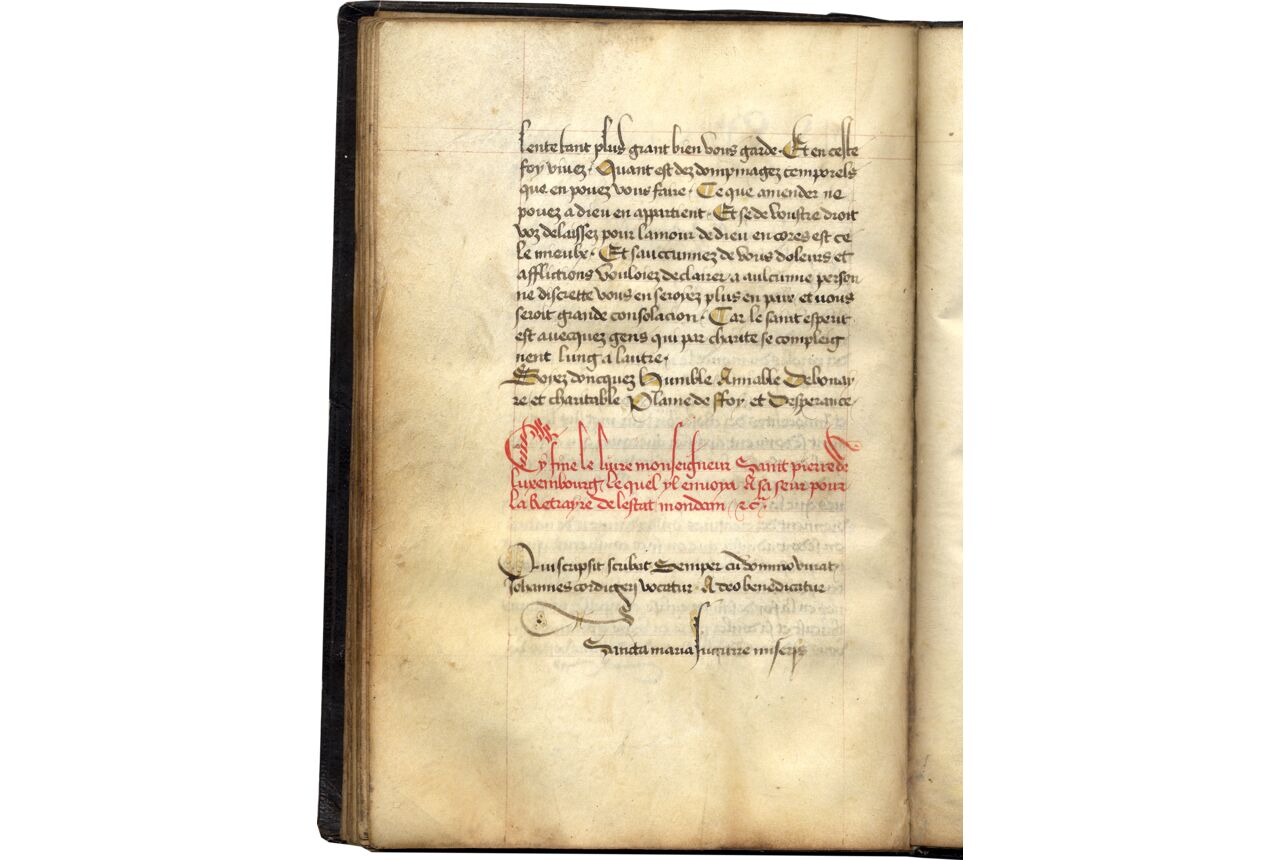 lente tant plus grant bien vous garde · Et en ceste
foy vivez · Quant est dez dompmagez temporels
que en pouez vous faire · Ce que amender ne
pouez a dieu en appartient · Et se de voustre droit
voz delaissez pour lamour de dieu encores est ce
le mieulx · Et sauccunnez de vous doleurs et
afflictions vouloiez declairer a aulcunne person
ne discrette vous en seroyez plus en paix et vous
seroit grande consolacion · Car le saint esperit
est avecquez gens qui par charite se compleig
nent lung a lautre ·
Soiez doncquez Humble Amiable Debonay
re et charitable Plaine de ffoy et Desperance
Cy fine le livre monseigneur Saint pierre de
luxembourg lequel yl envoya A sa seur pour
la Retrayre de lestat mondain ·
Qui scripsit scribat Semper cu domino vivat
Iohannes cordigerj vocatur · A deo benedicatur
Sancta maria Sucurre miseris